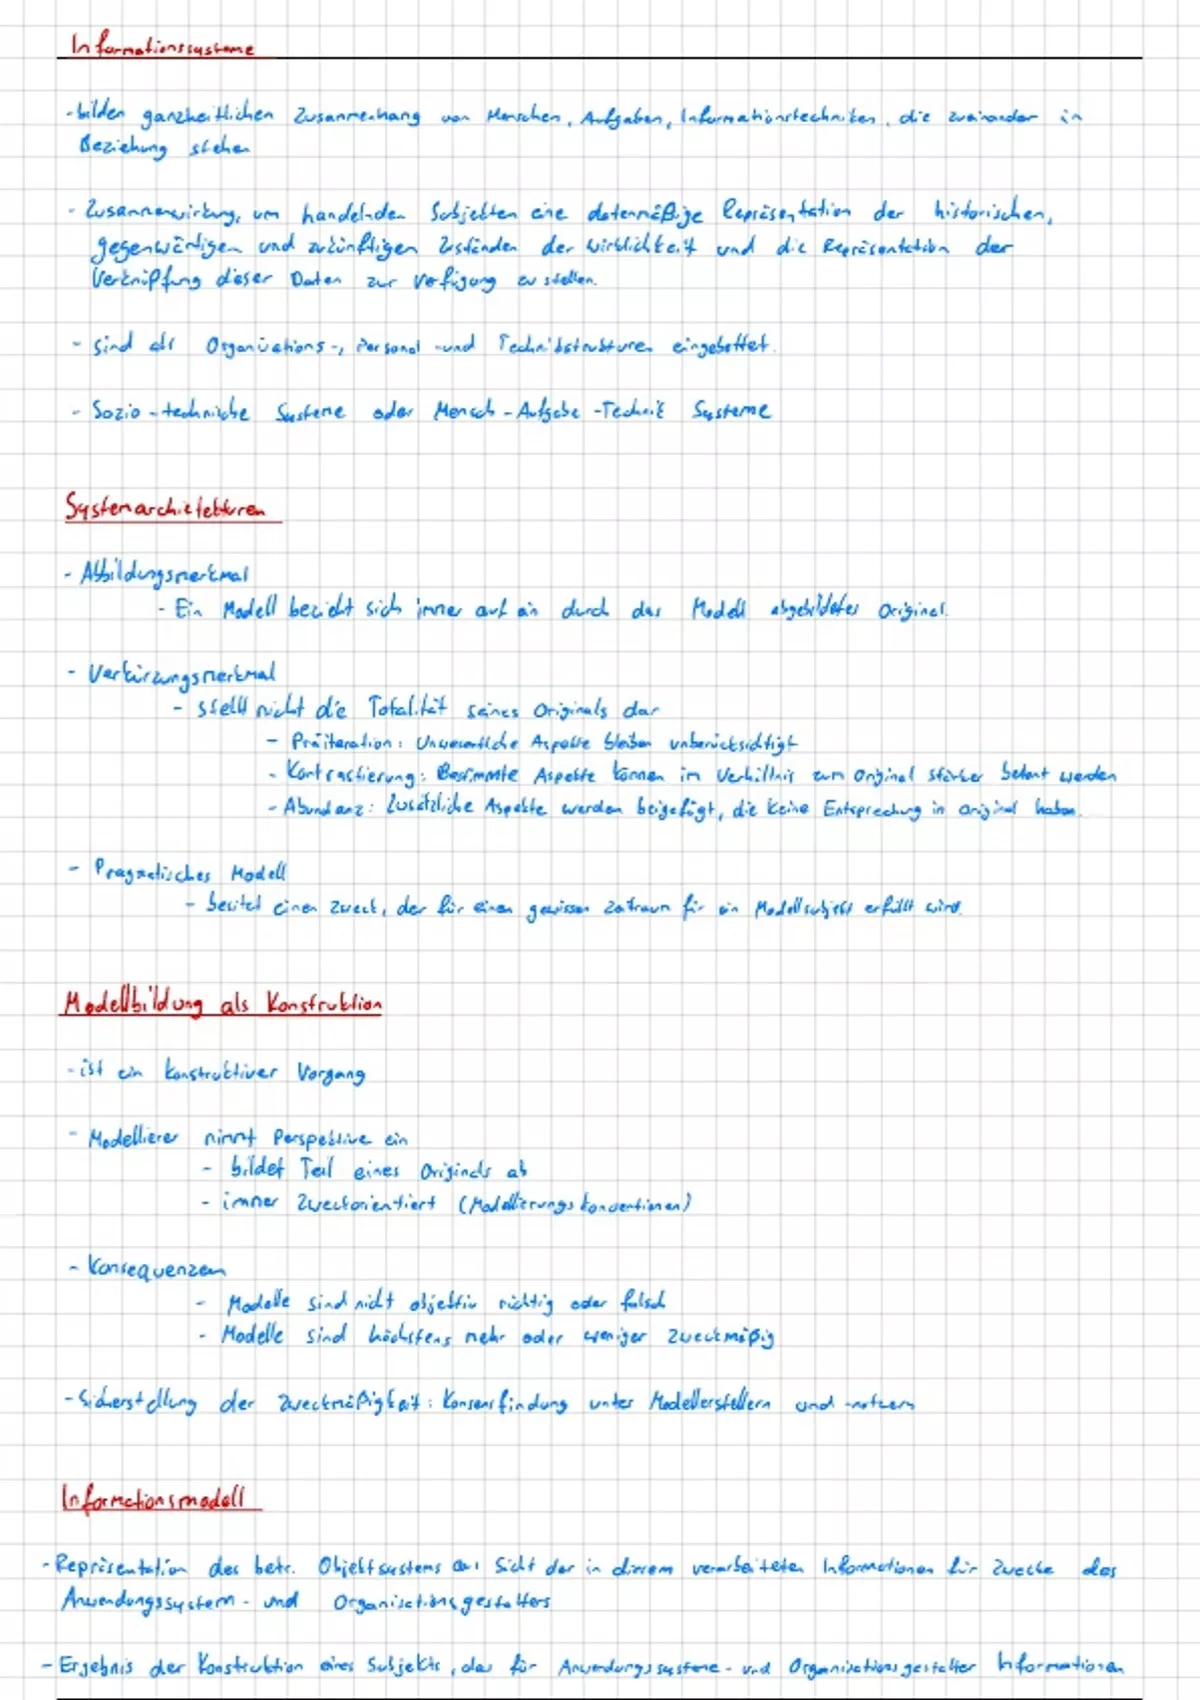 Informationssysteme
- bilden ganzheitlichen Zusammenhang von Menschen, Aufgaben, Informationstechniken, die zueinander in
Beziehung stehen
- Zusammenwirkung, um handelnden Subjekten eine datenmäßige Repräsentation der historischen,
gegenwärtigen und zukünftigen Zuständen der Wirklichkeit und die Repräsentation der
Verknüpfung dieser Daten zur Verfügung zu stellen.
- sind als Organisations-, Personal -und Technikstrukturen eingebettet.
- Sozio-technische Systeme oder Mensch-Aufgabe-Technik Systeme
Systemarchitekturen
- Abbildungsmerkmal
- Ein Modell bezieht sich immer auf ein durch das Modell abgebildetes Original.
- Verkürzungsmerkmal
- stellt nicht die Totalität seines Originals dar
- Präiteration: Unwesentliche Aspekte bleiben unberücksichtigt
- Kontrastierung: Bestimmte Aspekte können im Verhältnis zum Original stärker betont werden
- Abundanz: Zusätzliche Aspekte werden beigefügt, die keine Entsprechung in Original haben.
- Pragmatisches Modell
- besitzt einen Zweck, der für einen gewissen Zeitraum für ein Modellsubjekt erfüllt wird.
Modellbildung als Konstruktion
- ist ein konstruktiver Vorgang
- Modellierer nimmt Perspektive ein
- bildet Teil eines Originals ab
- immer Zweckorientiert (Modellierungskonventionen)
- Konsequenzen
- Modelle sind nicht objektiv richtig oder falsch
- Modelle sind höchstens mehr oder weniger zweckmäßig
- Sicherstellung der Zweckmäßigkeit: Konsensfindung unter Modellerstellern und -nutzern
Informationsmodell
- Repräsentation des betr. Objektsystems aus Sicht der in diesem verarbeiteten Informationen für Zwecke des
Anwendungssystem- und Organisationsgestalters
- Ergebnis der Konstruktion eines Subjekts, das für Anwendungssysteme- und Organisationsgestalter Informationen